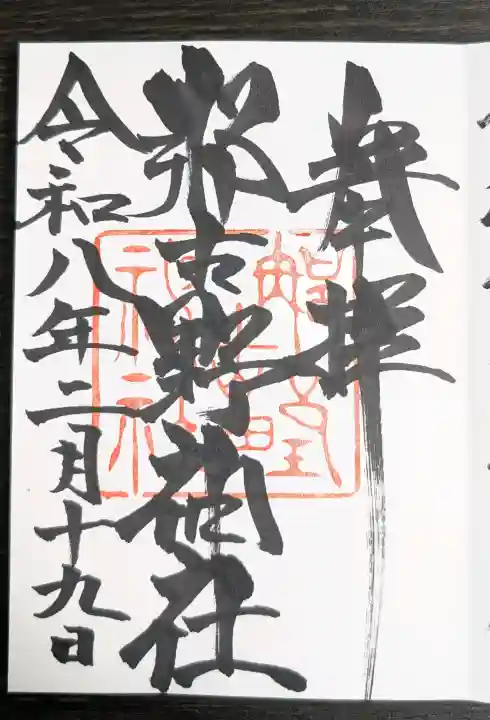 奉拝
那古野神社
令和八年二月十九日